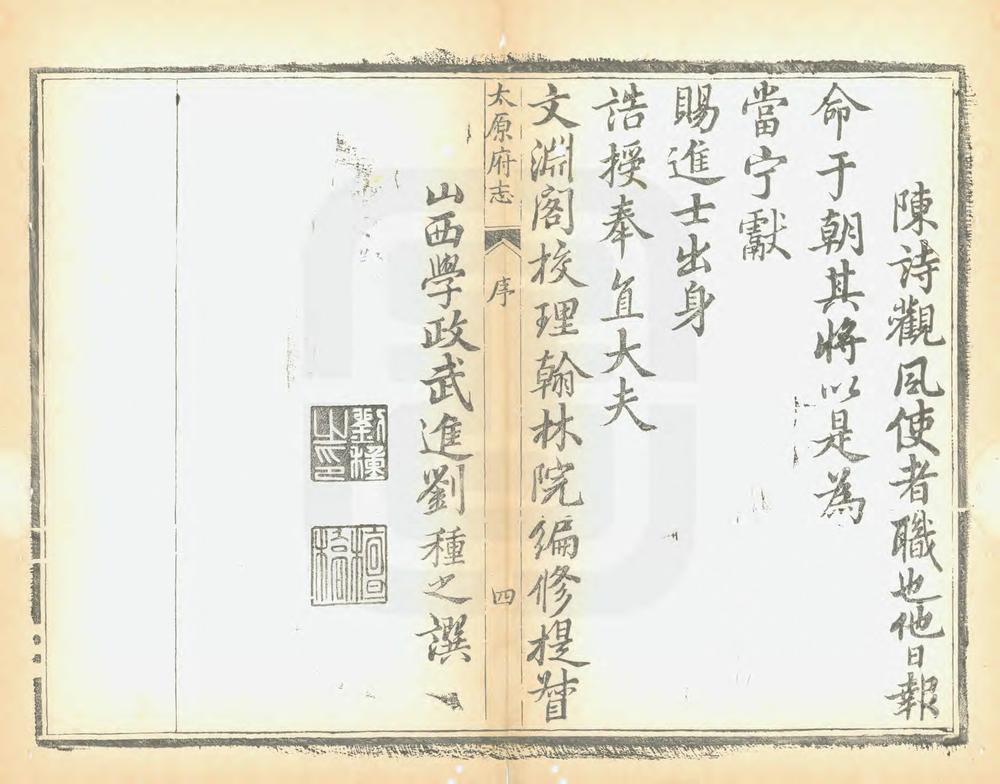 陳詩觀風使者職也他日報
命于朝其將以是為
當宁獻
賜進士出身
誥授奉直大夫
文淵閣校理翰林院編修提督
山西學政武進劉種之撰
太原府志
序
四
劉種之印